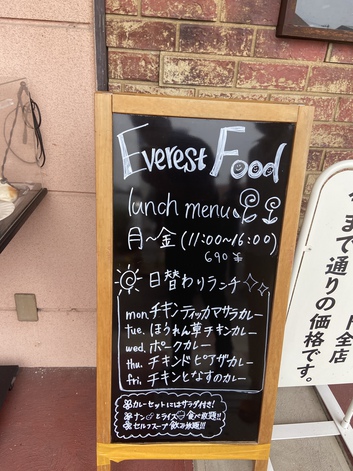 Everest Food
lunch menu
月～金 (11:00～16:00)
690 ¥
日替わりランチ
mon. チキンティッカマサラカレー
tue. ほうれん草チキンカレー
wed. ポークカレー
thu. チキンドピアザカレー
fri. チキンとなすのカレー
カレーセットにはサラダ付き!
ナンとライス食べ放題!!
セルフスープ飲み放題!!!
まで通りの価格です。
ト全店